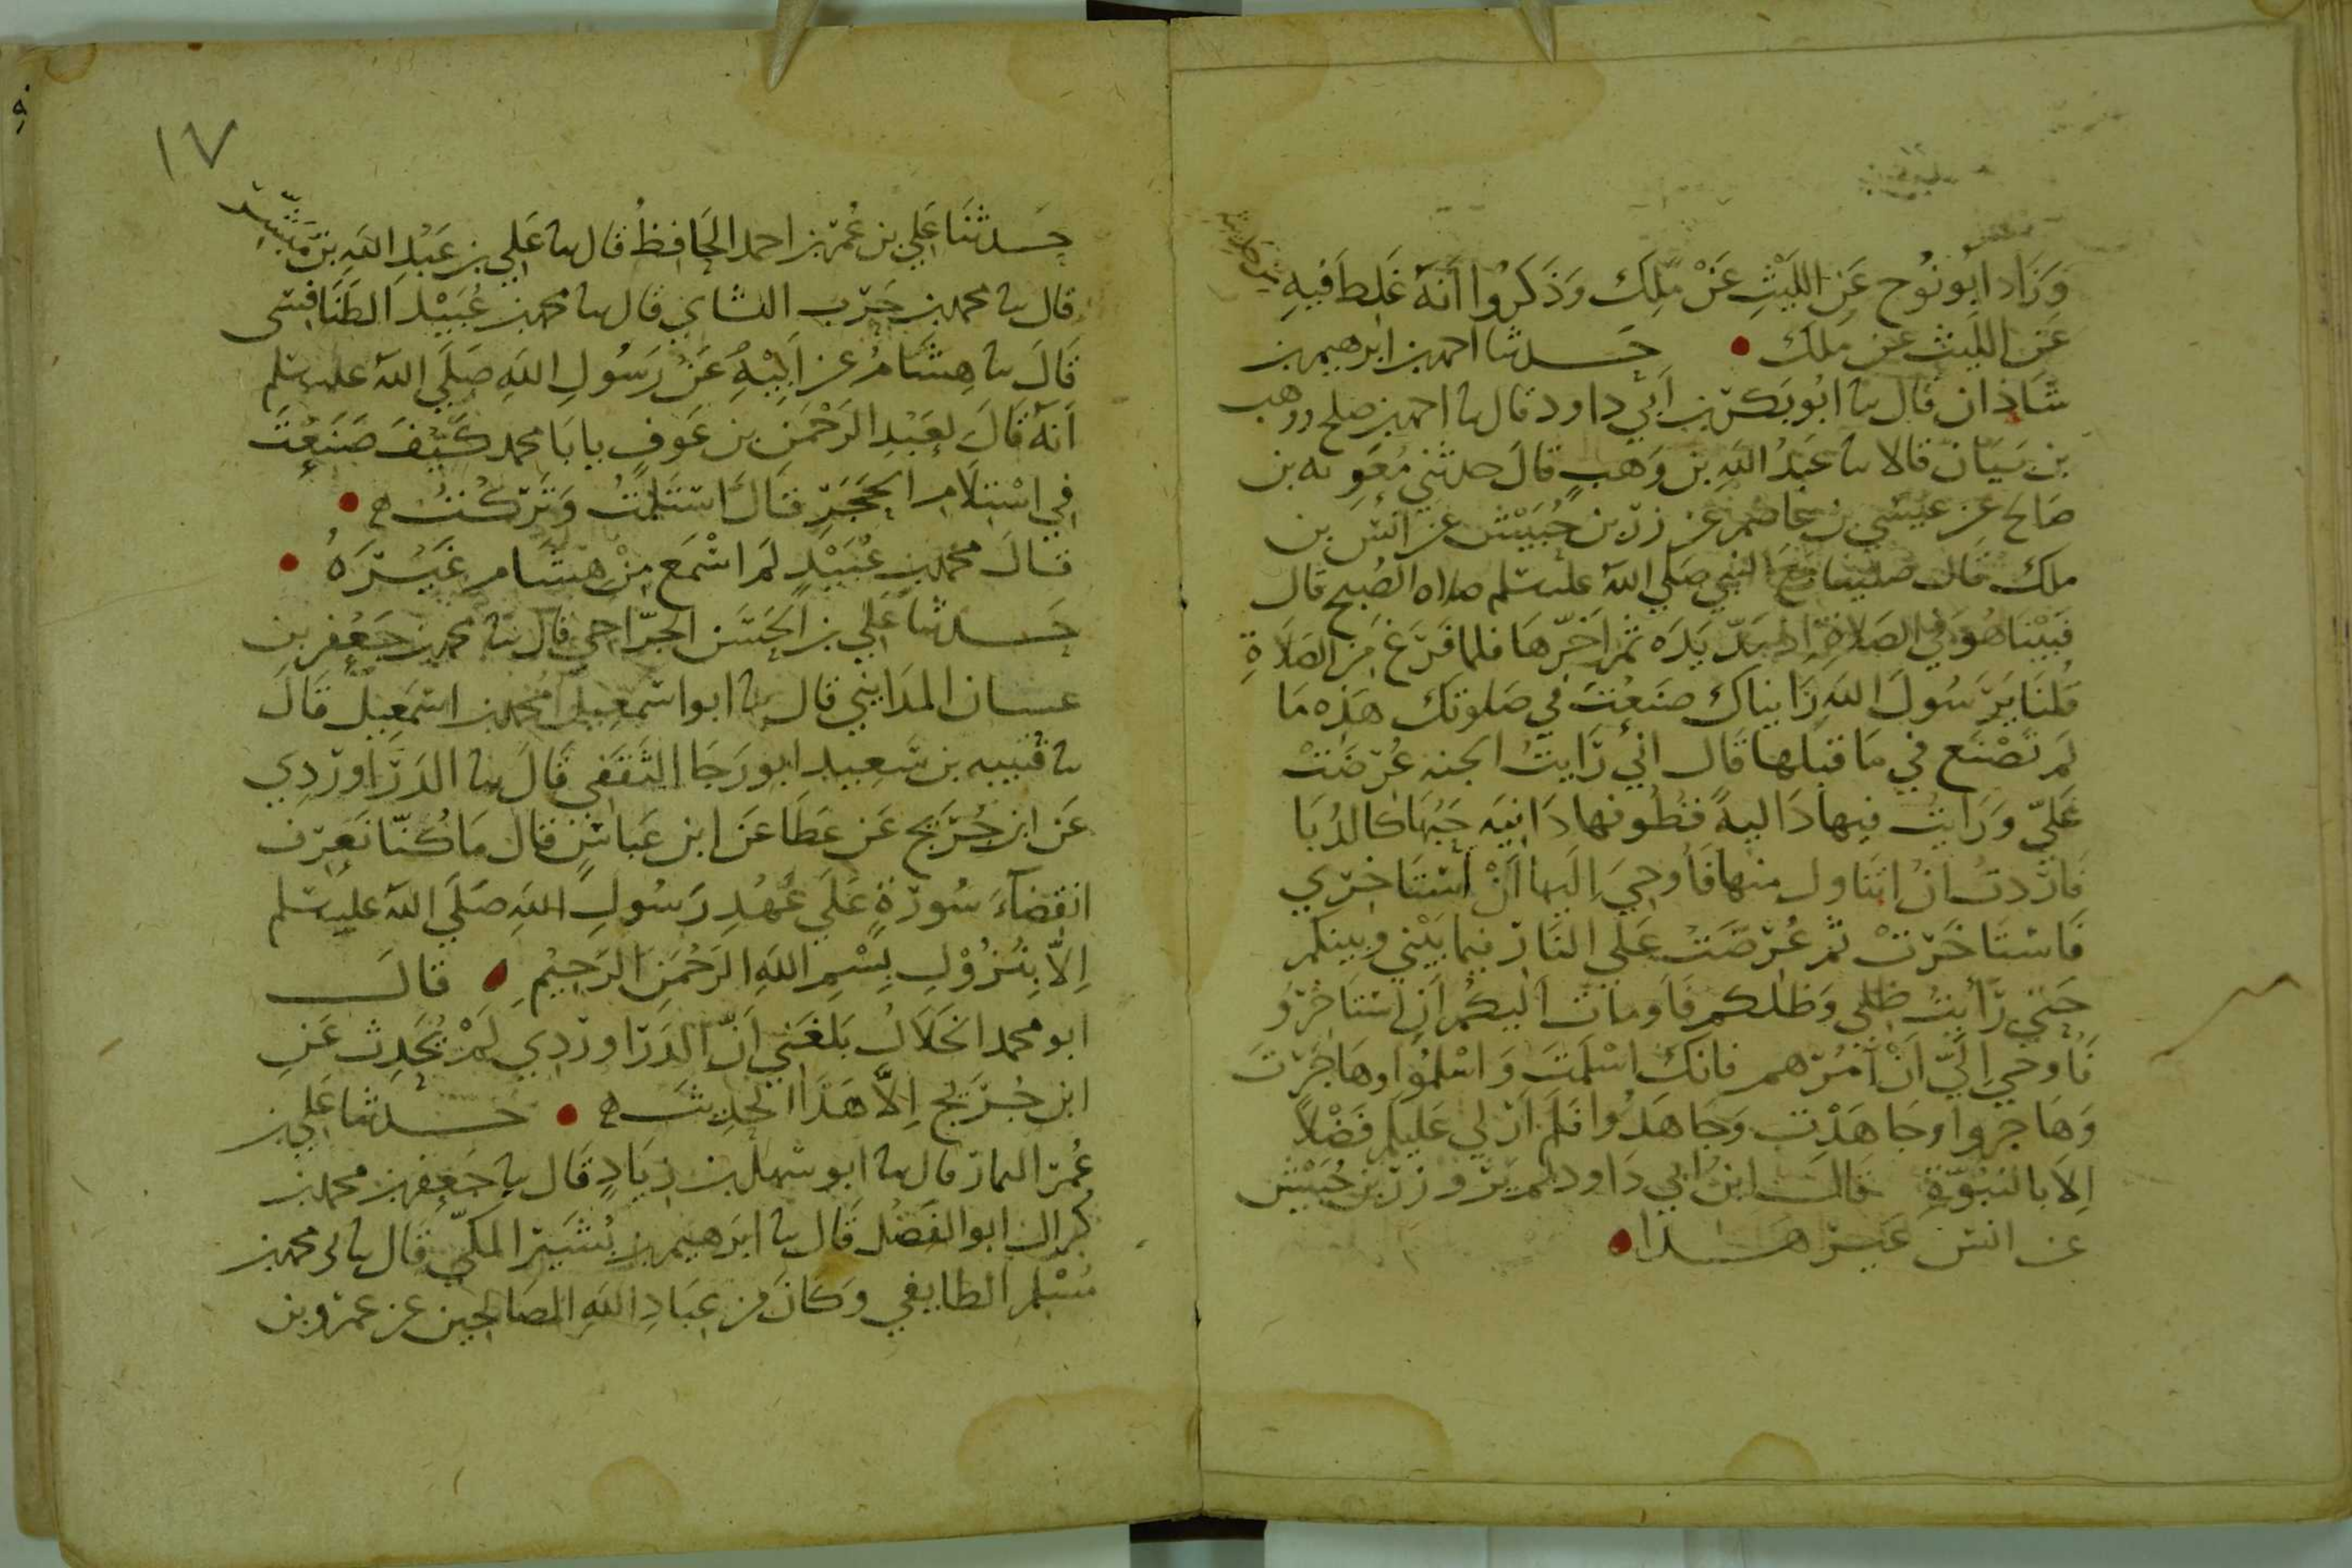 وَزَادَ ابُو نُوح عَنِ اللَّيْثِ عَنْ مٰلِك وَذَكَرُوا أَنَّهُ غَلِطَ فِيهِ
عَنِ اللَّيث عن مَٰلك • حَدثنا احمد بن ابرهيم بن
شَاذان قال نا ابُو بَكر بن أَبي داود قال نا احمد بن صلح ووهب
بن بَيَان قالا نا عَبدُ اللهِ بن وَهبٍ قالَ حدثني مُعَوِيه بن
صَالح عن عيسَي بن عَاصم عن زر بن حُبَيْش عن انس بن
ملك قال صلينا مَعَ النبي صَلي اللهُ عليه وسلم صلاه الصُبح قال
فَبَيْنا هُوَ في الصَلاةِ اذ مَدّ يَدَه ثم أخّرها فلما فَرغ مِن الصَلَاةِ
قُلنَا يَرَسُولَ اللهِ رَايناك صَنَعْتَ في صَلوتك هَذِه مَا
لَم تَصْنَع في مَا قبَلها قَال اني رَايتُ الجنه عُرضَتْ
عَلَيّ وَرَايتُ فيها دَاليةً قطُوفها دَانِيَه حَبُّهَا كالدُبَا
فَارَدتُ انْ اتَنَاول منها فَأُوحِيَ إلَيها أَنْ اسْتَاخري
فَاستَاخَرتْ ثم عُرضَتْ عَلي النَار فيما بَيْني وبينكم
حَتي رَأَيتُ ظلي وَظلكم فَاومات اليكم أن استَاخروا
فَاُوحي إِلَيّ اَنْ أَمُرهم فانك اسْلمتَ وَاسْلمُوا وهاجَرتَ
وَهَاجروا وجاهَدْتَ وَجَاهَدُوا فَلَم أرَ لي عَليكم فَضْلاً
إلا بالنبُوّةِ قال ابن ابي دَاود لم يَرو زر بن حُبَيْش
عن انس غَير هــذا •
حَــدثنَا عَلي بن عُمَر بن احمد الحَافِظُ قال نا عَلي بن عَبْدِ اللهِ بن مُبَشِّر
قال نا محمد بن حَرب النشاي قال نا محمد بن عُبَيْد الطنَافِسي
قَالَ نا هِشَامُ عن اَبِيْهِ عَنْ رَسُولِ اللهِ صَلَي اللهُ عليه وسلم
أَنهُ قَالَ لِعَبْدِ الرَحْمَن بن عَوفٍ يا بَا محمد كَيْفَ صَنَعْتَ
فِي اسْتِلَامِ الحَجَرِ قَالَ استَلَمْتُ وَتَركْتُ ه •
قَالَ محمد بن عُبَيْدٍ لم اسْمَع مِنْ هِشَامٍ غَيْرَهُ •
حَــدثنا عَلي بن الحَسَن الجرّاحي قَال نا محمد بن جَعْفر بن
عسان المَدَايني قال نا ابو اسْمعِيلَ محمد بن اسمَعِيل قَالَ
نا قتيبه بن سَعِيد ابو رَجَا الثقَفي قَالَ نا الدَرَاوَردِي
عَن ابن جُرَيج عَن عَطَا عَن ابن عَباسٍ قال مَا كُنّا نَعرِف
انقِضَاءَ سُورَةٍ عَلَي عَهْدِ رَسُولِ اللهِ صَلَي اللهُ عليه وسلم
اِلاَّ بِنُزُوْلِ بِسْمِ اللهِ الرَحْمَنِ الرَحِيْمِ • قالَ
ابو محمد الخَلَالُ بَلغَني اَنّ الدَرَاوردِي لَمْ يُحَدِث عَنِ
ابن جُرَيْج اِلاَّ هَذَا الحَدِيثَ ه • حَــدثنا عَلي بن
عُمر التمار قال نا ابو سَهل بن زيَادٍ قَال نا جَعفر بن محمد بن
كزال ابو الفَضْل قَال نا ابرَهيم بن بُشَير المكّي قَال نا محمد بن
مُسْلم الطايفي وَكَانَ مِن عِبَادِ اللهِ الصَالحِين عن عَمرو بن
١٧